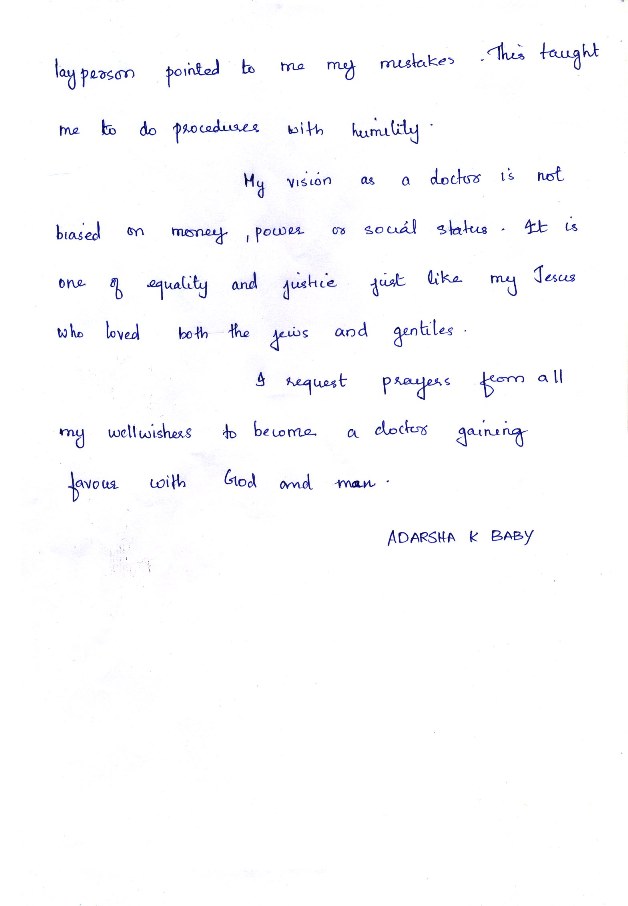 layperson pointed to me my mistakes . This taught
me to do procedures with humility.
My vision as a doctor is not
biased on money , power or social status. It is
one of equality and justice just like my Jesus
who loved both the jews and gentiles.
I request prayers from all
my wellwishers to become a doctor gaining
favour with God and man.
ADARSHA K BABY